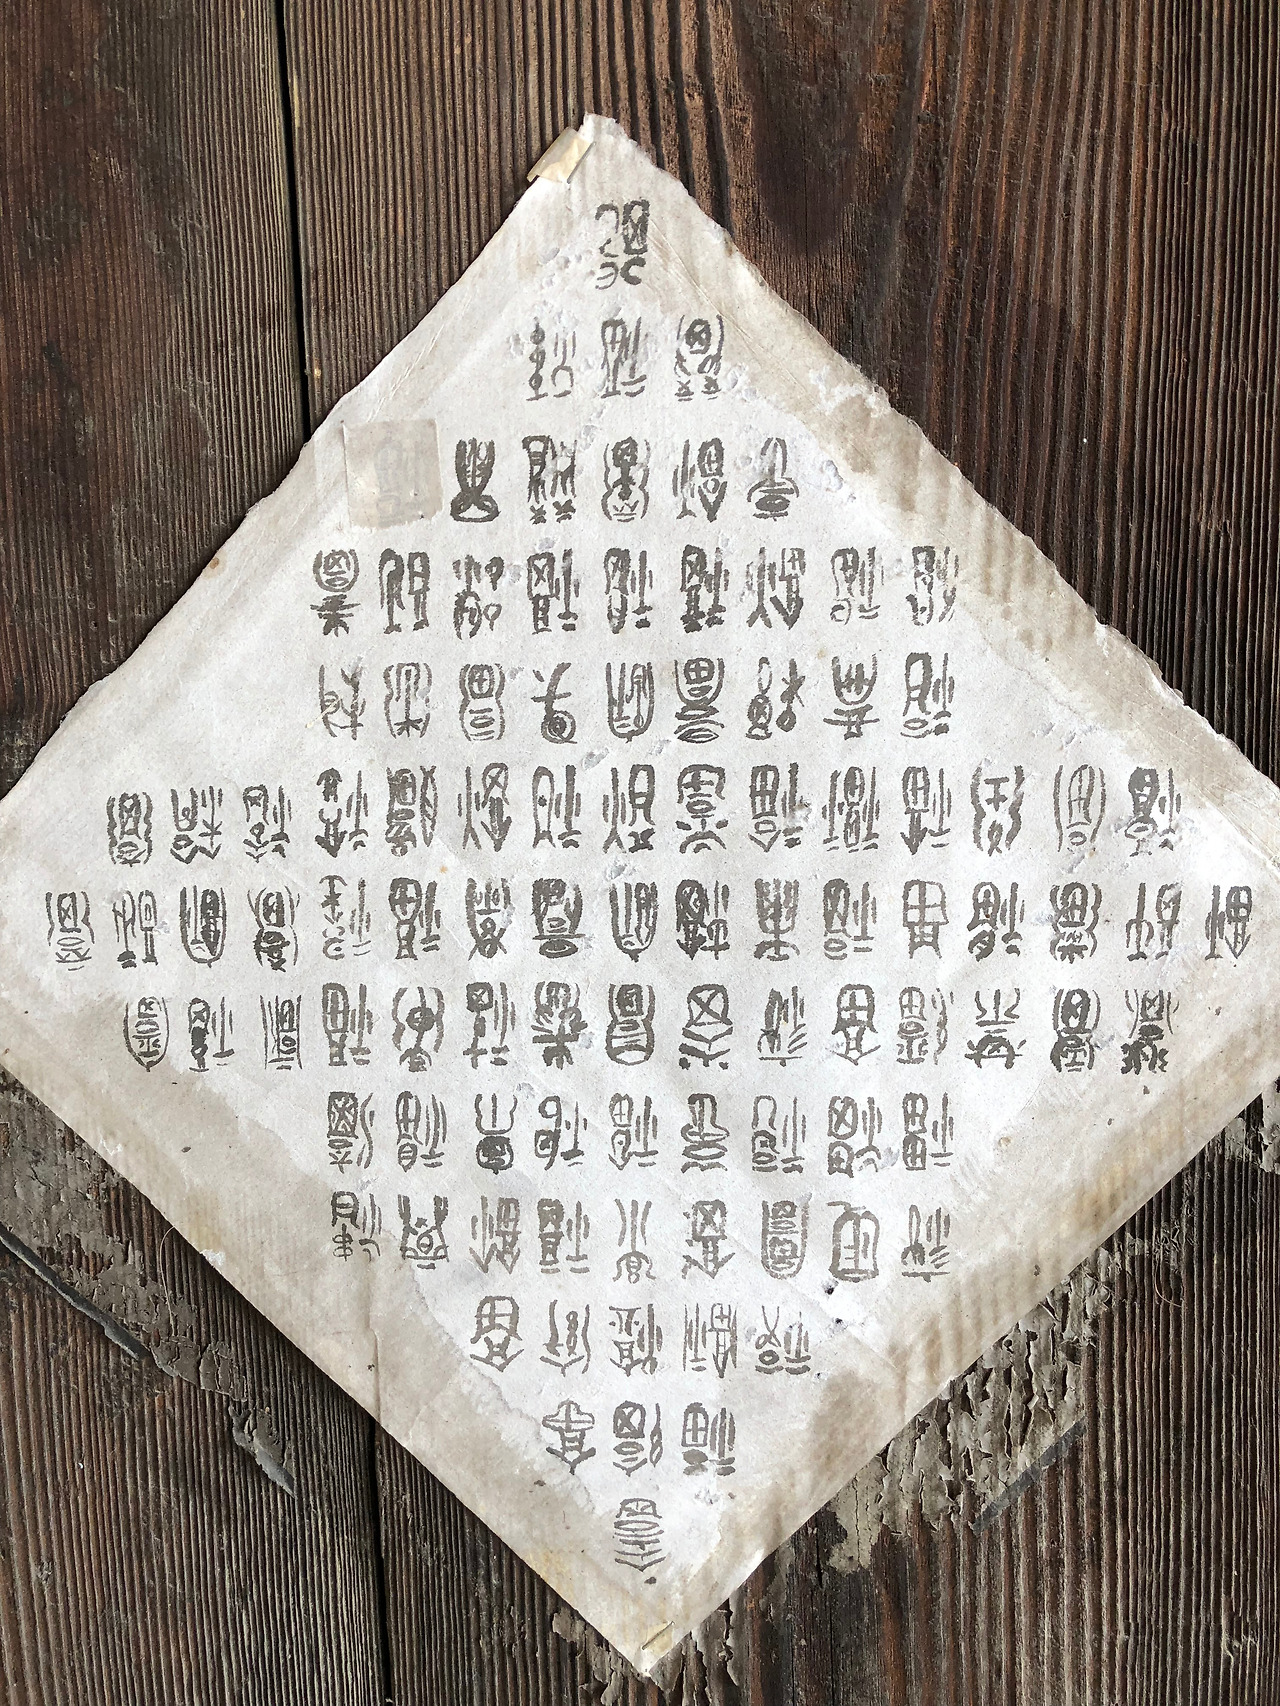 福
福福福
福福福福福
福福福福福福福福福
福福福福福福福福福
福福福福福福福福福福福福福福福
福福福福福福福福福福福福福福福福福
福福福福福福福福福福福福福福福
福福福福福福福福福
福福福福福福福福福
福福福福福
福福福
福